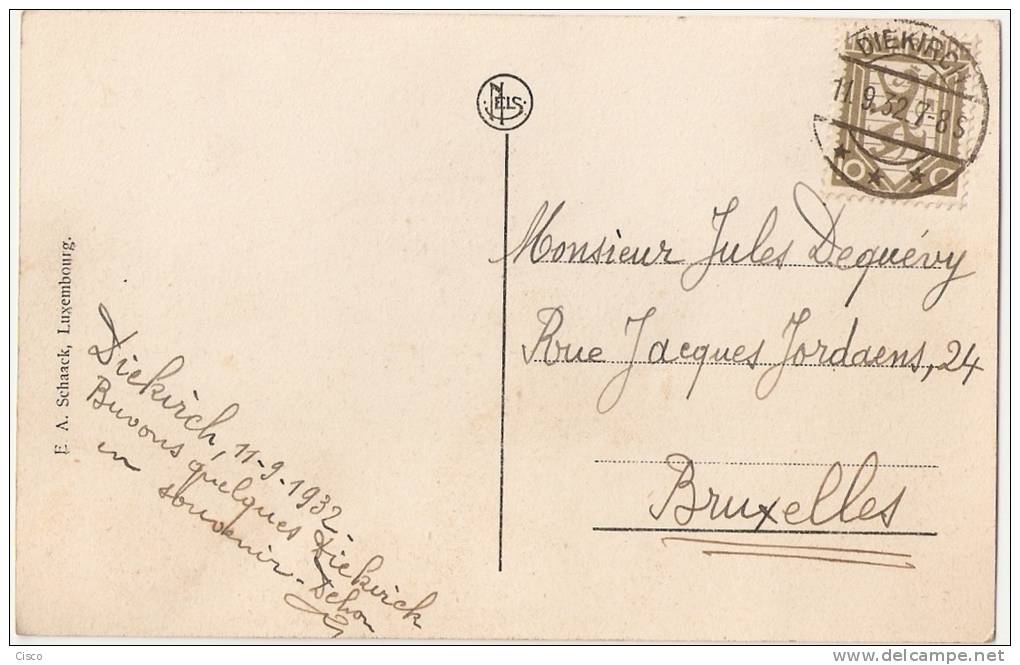 DIEKIRCH
11.9.32.7-8S
NELS
Monsieur Jules Dequévy
Rue Jacques Jordaens, 24
Bruxelles
E. A. Schaack, Luxembourg.
Diekirch, 11-9-1932
Buvons quelques Diekirch
en souvenir - Dehon
Cisco
delcampe.net